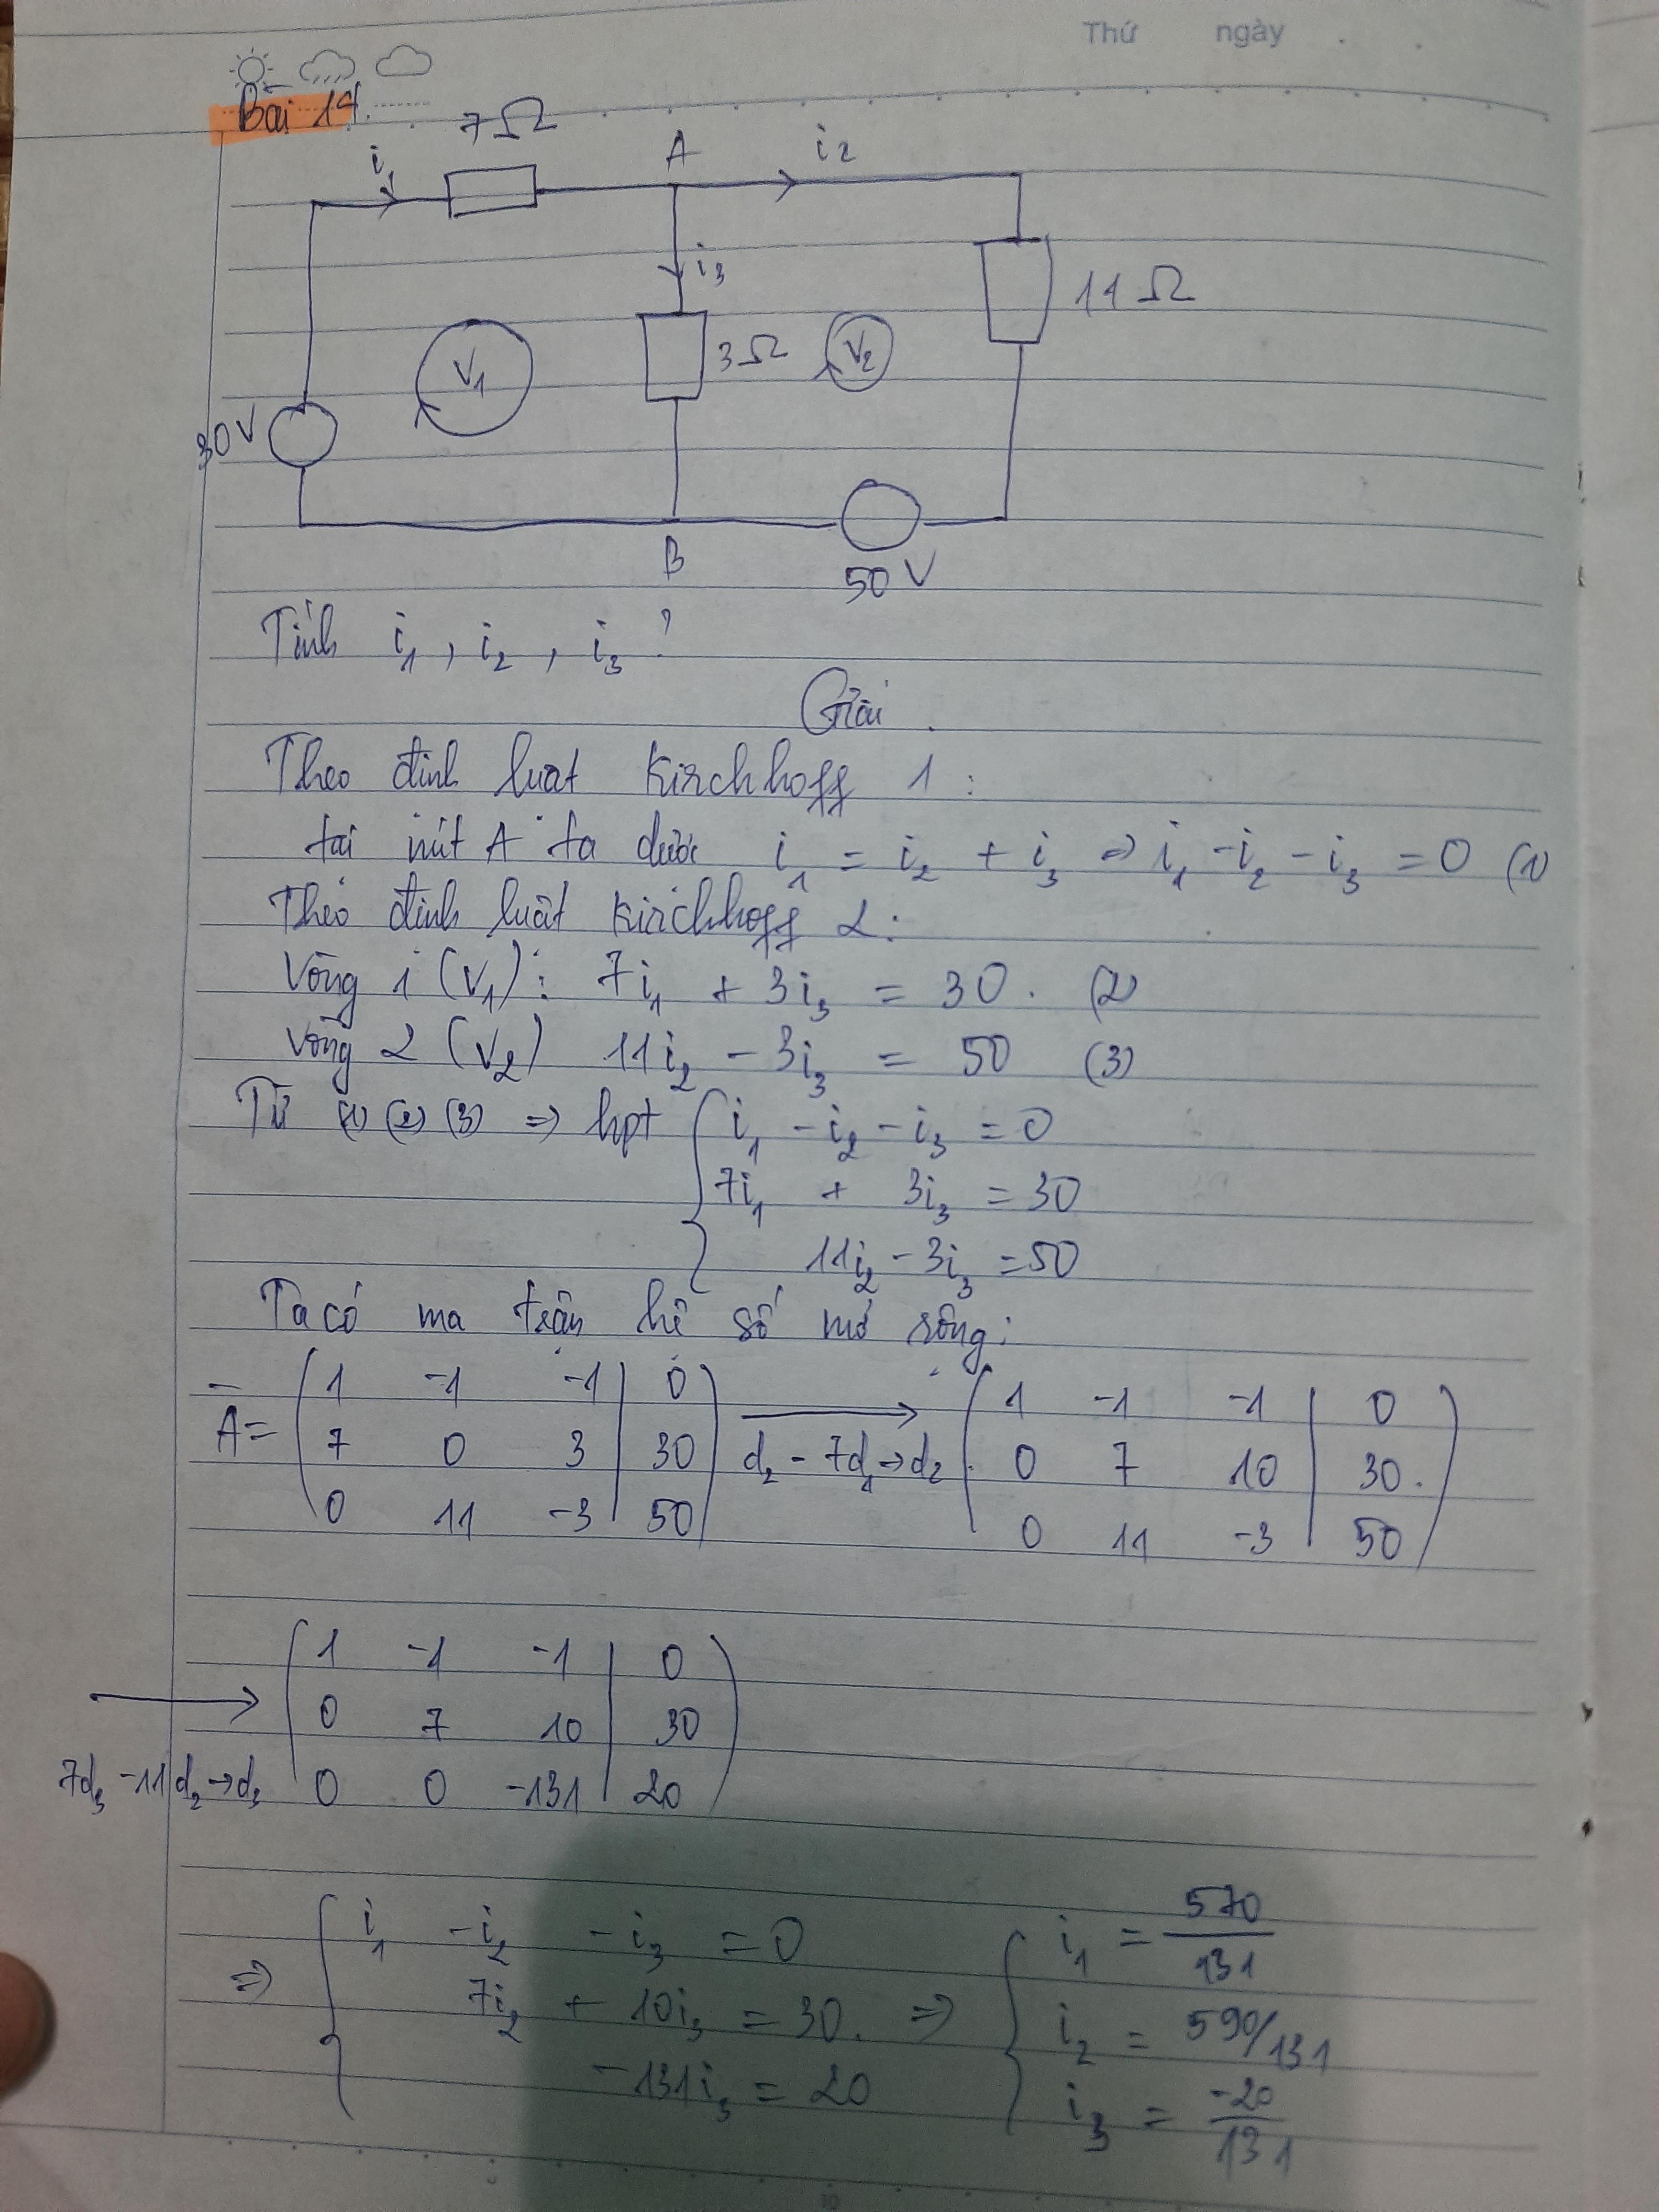 Thứ ngày
Bài 14.
7Ω
i1 A i2
i3
11Ω
V1 3Ω V2
30V
B
50V
Tính i1, i2, i3?
Giải.
Theo định luật Kirchhoff 1:
tại nút A ta được i1 = i2 + i3 => i1 - i2 - i3 = 0 (1)
Theo định luật Kirchhoff 2:
Vòng 1 (V1): 7i1 + 3i3 = 30. (2)
Vòng 2 (V2) 11i2 - 3i3 = 50 (3)
Từ (1) (2) (3) => hpt { i1 - i2 - i3 = 0
7i1 + 3i3 = 30
11i2 - 3i3 = 50
Ta có ma trận hệ số mở rộng:
1 -1 -1 | 0 1 -1 -1 | 0
Ā = 7 0 3 | 30 d2 - 7d1 → d2 0 7 10 | 30.
0 11 -3 | 50 0 11 -3 | 50
1 -1 -1 | 0
→ 0 7 10 | 30
7d3 - 11d2 → d3 0 0 -131 | 20
i1 - i2 - i3 = 0 i1 = 570/131
=> 7i2 + 10i3 = 30. => i2 = 590/131
-131i3 = 20 i3 = -20/131